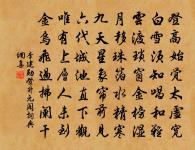 登高始覺太虛寬
白雪須知唱和難
雲渡瑣窗金榜濕
月移珠箔水精寒
九天星象簾前見
六代城池直下觀
唯有上層人未到
金烏飛過拂闌干
李建勛登升元閣詞典
網集